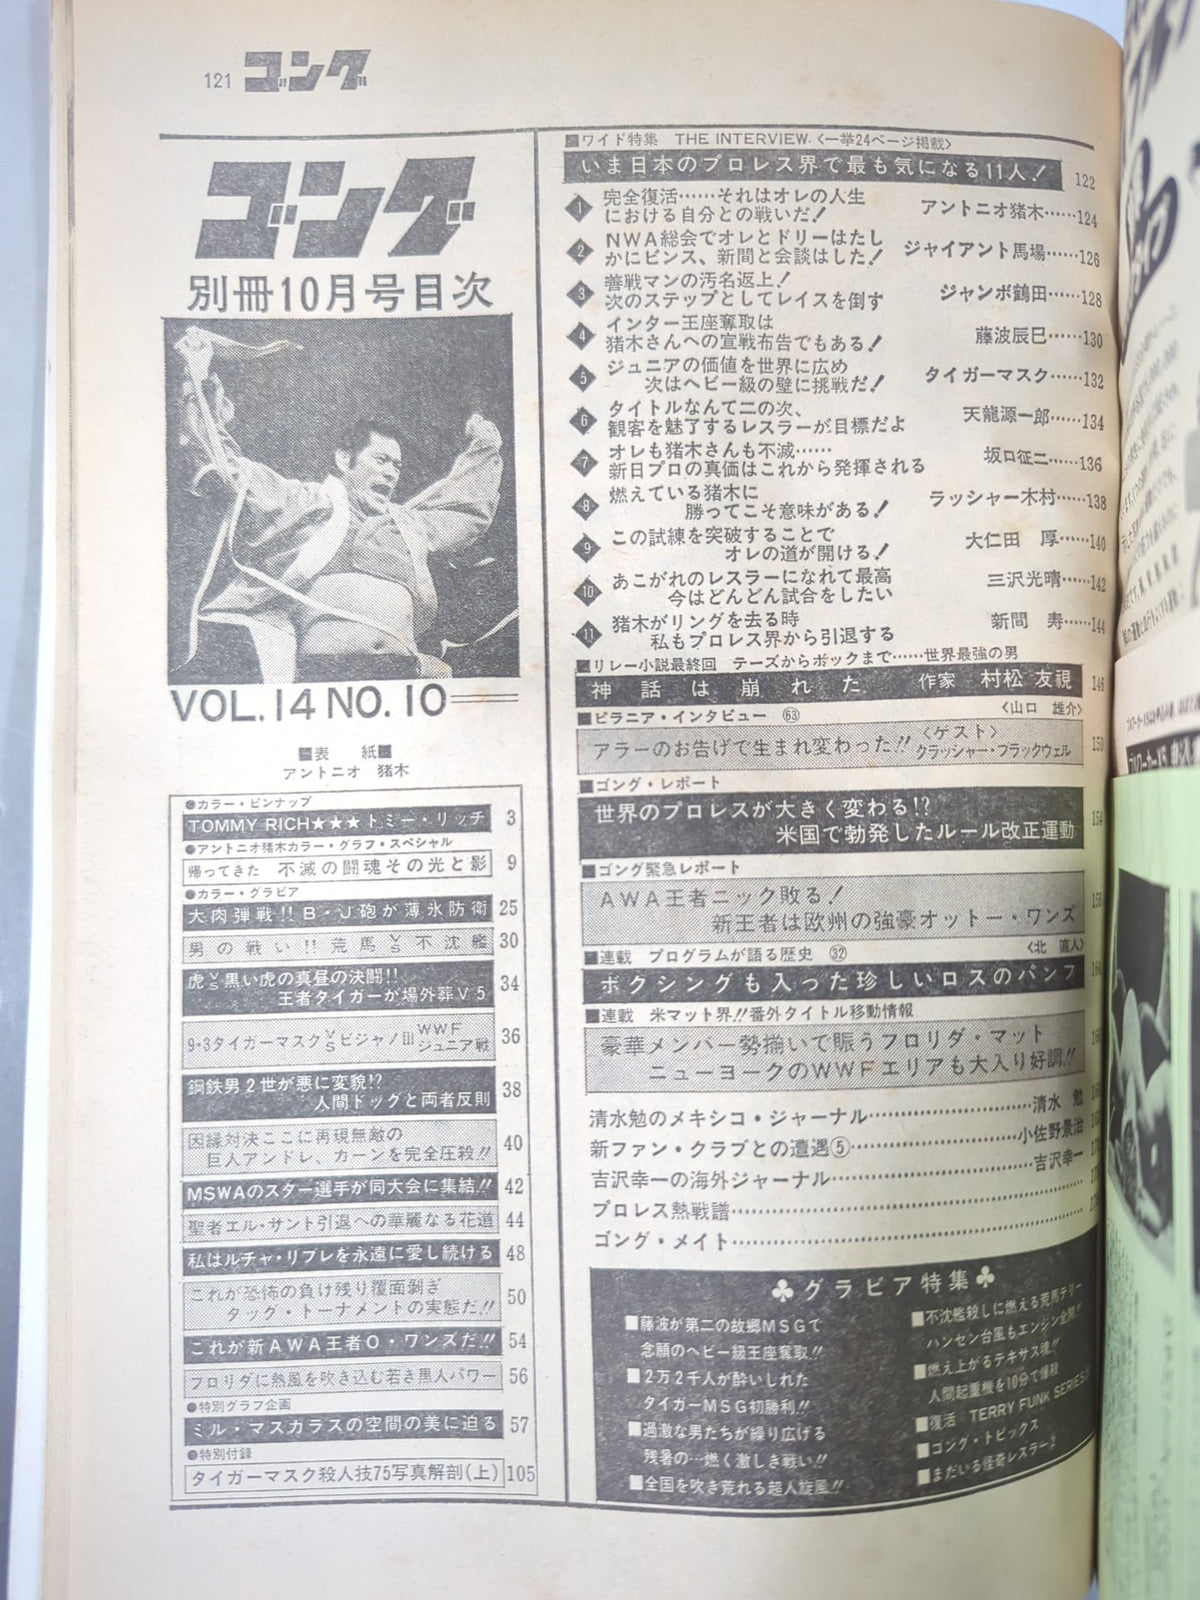 121 ゴング
ゴング
別冊10月号目次
VOL.14 NO.10
■表 紙■
アントニオ 猪木
●カラー・ピンナップ
TOMMY RICH★★★トミー・リッチ 3
●アントニオ猪木カラー・グラフ・スペシャル
帰ってきた 不滅の闘魂その光と影 9
●カラー・グラビア
大肉弾戦!! B・J砲が薄氷防衛 25
男の戦い!! 荒馬VS不沈艦 30
虎VS黒い虎の真昼の決闘!!
王者タイガーが場外葬V5 34
9・3タイガーマスクVSビジャノⅢ WWFジュニア戦 36
鋼鉄男2世が悪に変貌!?
人間ドッグと両者反則 38
因縁対決ここに再現無敵の
巨人アンドレ、カーンを完全圧殺!! 40
MSWAのスター選手が同大会に集結!! 42
聖者エル・サント引退への華麗なる花道 44
私はルチャ・リブレを永遠に愛し続ける 48
これが恐怖の負け残り覆面剝ぎ
タッグ・トーナメントの実態だ!! 50
これが新AWA王者O・ワンズだ!! 54
フロリダに熱風を吹き込む若き黒人パワー 56
●特別グラフ企画
ミル・マスカラスの空間の美に迫る 57
●特別付録
タイガーマスク殺人技75写真解剖(上) 105
■ワイド特集 THE INTERVIEW.〈一挙24ページ掲載〉
いま日本のプロレス界で最も気になる11人! 122
1 完全復活……それはオレの人生
における自分との戦いだ! アントニオ猪木……124
2 NWA総会でオレとドリーはたし
かにビンス、新間と会談はした! ジャイアント馬場……126
3 善戦マンの汚名返上!
次のステップとしてレイスを倒す ジャンボ鶴田……128
4 インター王座奪取は
猪木さんへの宣戦布告でもある! 藤波辰巳……130
5 ジュニアの価値を世界に広め
次はヘビー級の壁に挑戦だ! タイガーマスク……132
6 タイトルなんて二の次、
観客を魅了するレスラーが目標だよ 天龍源一郎……134
7 オレも猪木さんも不滅……
新日プロの真価はこれから発揮される 坂口征二……136
8 燃えている猪木に
勝ってこそ意味がある! ラッシャー木村……138
9 この試練を突破することで
オレの道が開ける! 大仁田 厚……140
10 あこがれのレスラーになれて最高
今はどんどん試合をしたい 三沢光晴……142
11 猪木がリングを去る時
私もプロレス界から引退する 新間 寿……144
■リレー小説最終回 テーズからボックまで……世界最強の男
神話は崩れた 作家 村松 友視 146
■ピラニア・インタビュー ㊸ 〈山口 雄介〉
アラーのお告げで生まれ変わった!! 〈ゲスト〉クラッシャー・ブラックウェル 150
■ゴング・レポート
世界のプロレスが大きく変わる!?
米国で勃発したルール改正運動 154
■ゴング緊急レポート
AWA王者ニック敗る!
新王者は欧州の強豪オットー・ワンズ
■連載 プログラムが語る歴史 ㉜ 〈北 直人〉
ボクシングも入った珍しいロスのパンフ
■連載 米マット界!!番外タイトル移動情報
豪華メンバー勢揃いで賑うフロリダ・マット
ニューヨークのWWFエリアも大入り好調!!
清水勉のメキシコ・ジャーナル……清水 勉
新ファン・クラブとの遭遇⑤……小佐野景治
吉沢幸一の海外ジャーナル……吉沢幸一
プロレス熱戦譜……
ゴング・メイト……
♣グラビア特集♣
■藤波が第二の故郷MSGで
念願のヘビー級王座奪取!!
■2万2千人が酔いしれた
タイガーMSG初勝利!!
■過激な男たちが繰り広げる
残暑の…燃く激しき戦い!!
■全国を吹き荒れる超人旋風!!
■不沈艦殺しに燃える荒馬テリー
ハンセン台風もエンジン全開!!
■燃え上がるテキサス魂!!
人間起重機を10分で爆殺
■復活 TERRY FUNK SERIES
■ゴング・トピックス
■まだいる怪奇レスラー2